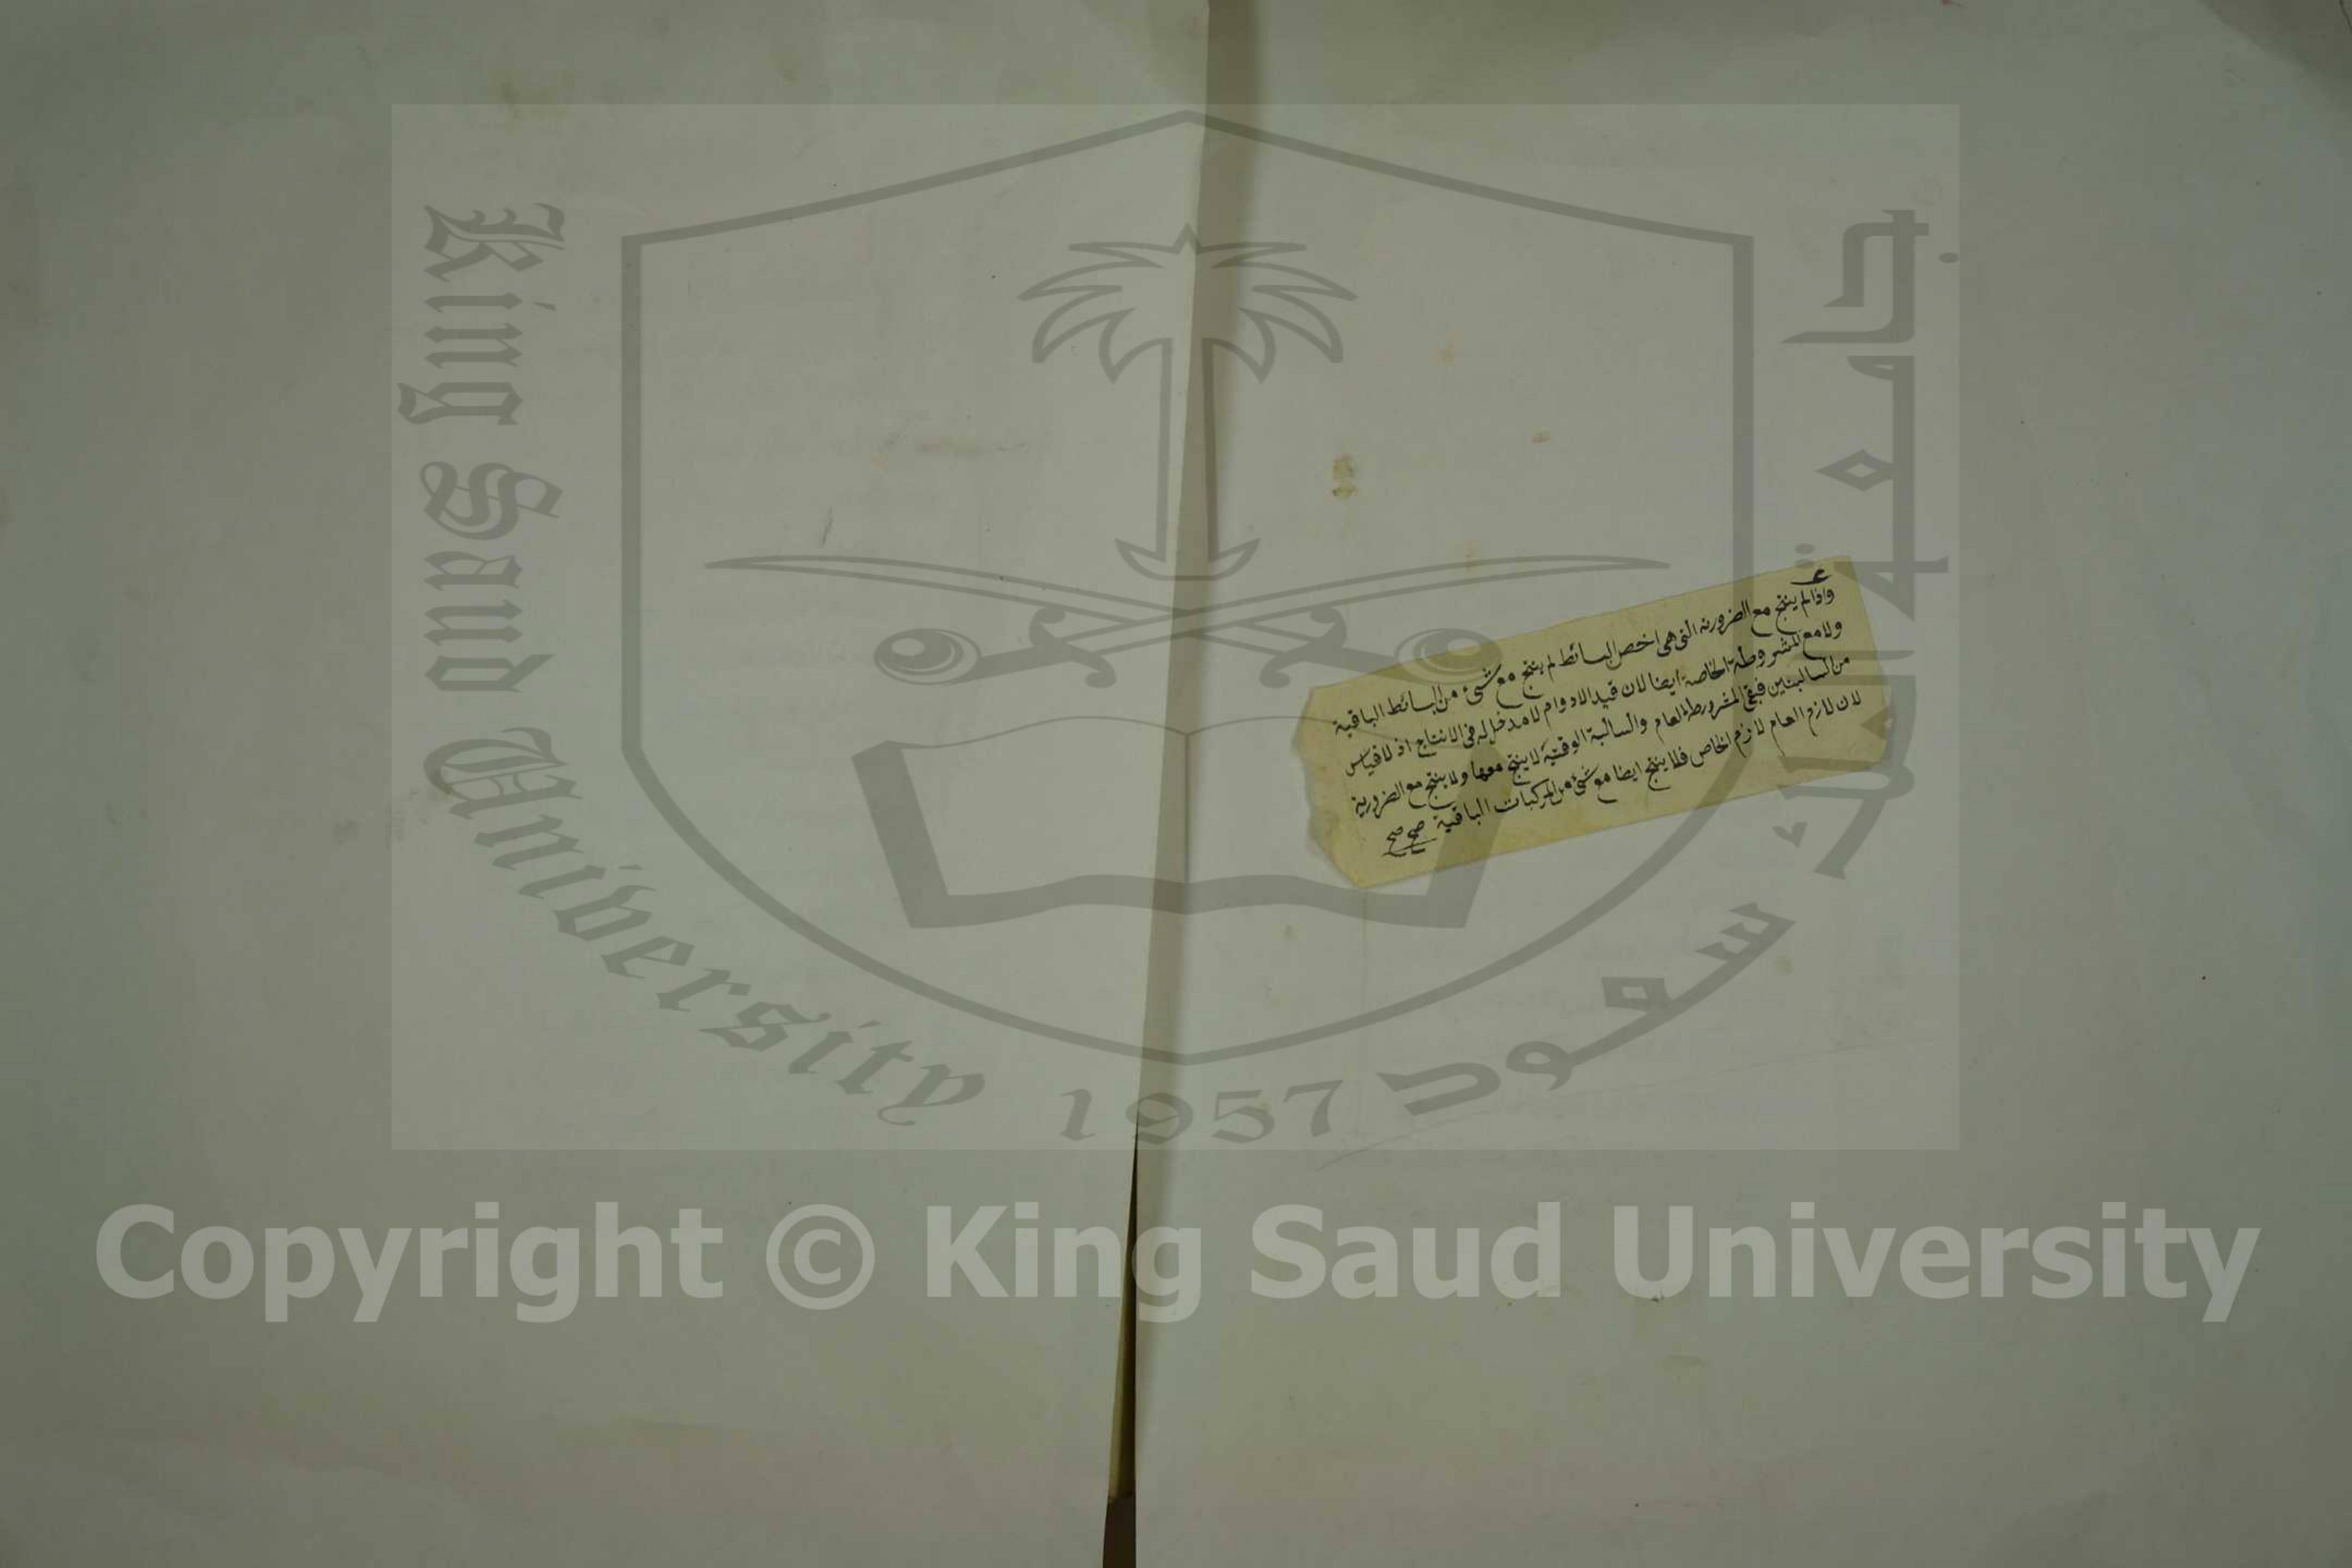 واذا لم ينتج مع الضرورية التى هى اخص البسائط لم ينتج مع شئ من البسائط الباقية
ولا مع المشروطة الخاصة ايضا لان قيد اللادوام لا مدخل له فى الانتاج اذ لا قياس
من السالبتين فبقى المشروطة العام والسالبة الوقتية لا ينتج معها ولا ينتج مع الضرورية
لان لازم العام لازم الخاص فلا ينتج ايضا مع شئ من المركبات الباقية صح صح
King Saud University
1957
جامعة الملك سعود
Copyright © King Saud University